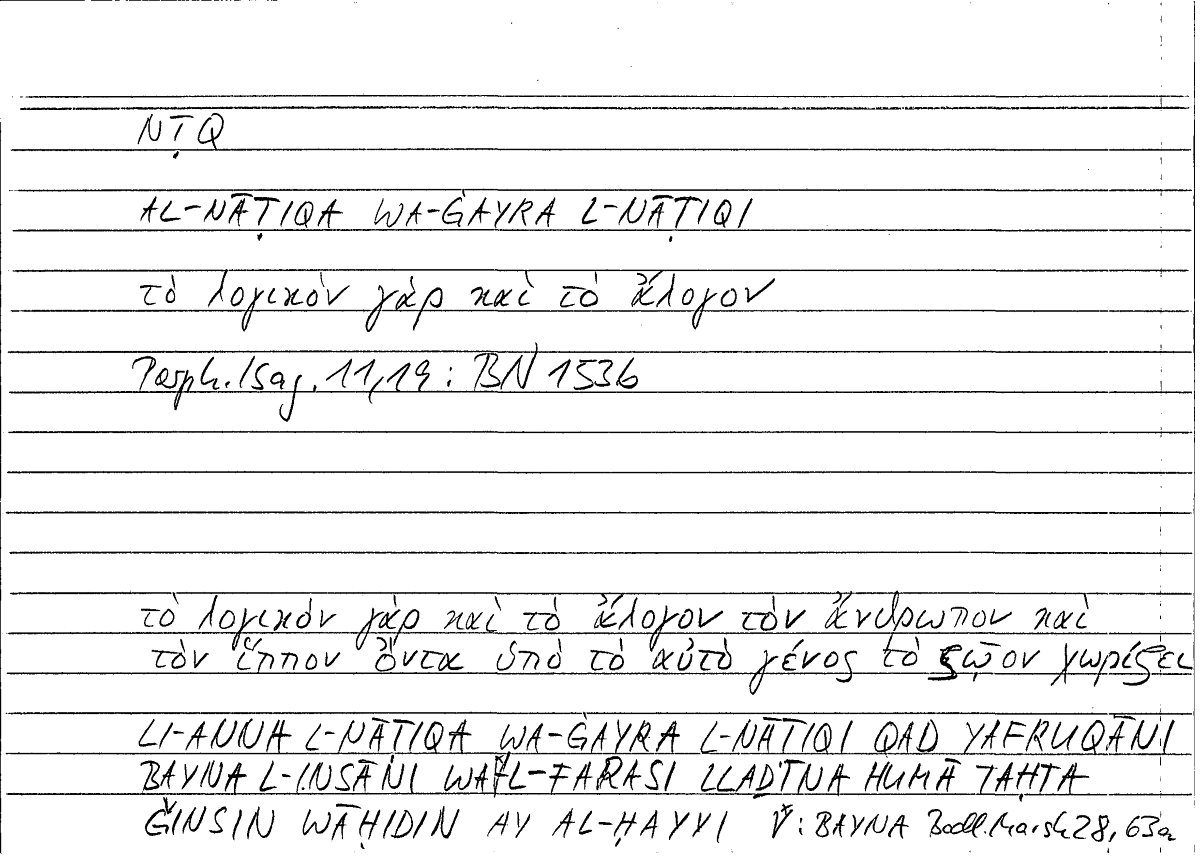 NṬQ
AL-NĀṬIQA WA-ĠAYRA L-NĀṬIQI
τὸ λογικὸν γὰρ καὶ τὸ ἄλογον
Porph. Isag. 11,19: BN 1536
τὸ λογικὸν γὰρ καὶ τὸ ἄλογον τὸν ἄνθρωπον καὶ
τὸν ἵππον ὄντα ὑπὸ τὸ αὐτὸ γένος τὸ ζῷον χωρίζει
LI-ANNA L-NĀṬIQA WA-ĠAYRA L-NĀṬIQI QAD YAFRUQĀNI
BAYNA L-INSĀNI WA*L-FARASI LLAḎĪNA HUMĀ TAḤTA
ǦINSIN WĀḤIDIN AY AL-ḤAYYI *: BAYNA Bodl. Marsh 28, 63a